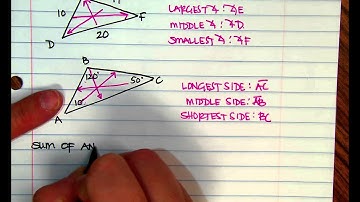 10
F
D
20
LARGEST ∡: ∡E
MIDDLE ∡: ∡D
SMALLEST ∡: ∡F
B
120°
50°
C
10°
A
LONGEST SIDE: AC
MIDDLE SIDE: AB
SHORTEST SIDE: BC
SUM OF AN